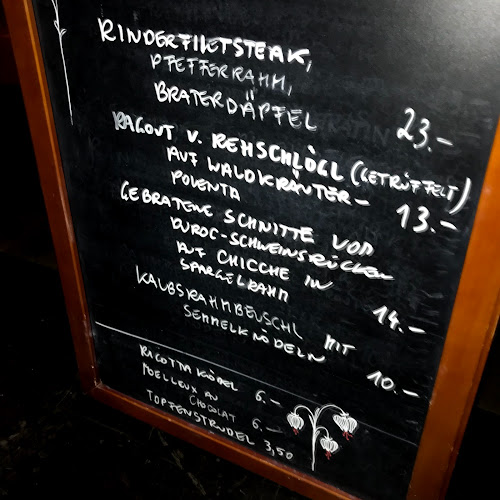 RINDERFILETSTEAK,
PFEFFERRAHM,
BRATERDÄPFEL 23.-
RAGOUT V. REHSCHLÖGL (GETRÜFFELT)
AUF WALDKRÄUTER-
POLENTA 13.-
GEBRATENE SCHNITTE VOM
DUROC-SCHWEINSRÜCKEN
AUF CHICCHE IN
SPARGELRAHM 14.-
KALBSRAHMBEUSCHL MIT
SEMMELKNÖDELN 10.-
RICOTTAKÖDEL 6.-
MOELLEUX AU
CHOCOLAT 6.-
TOPFENSTRUDEL 3,50